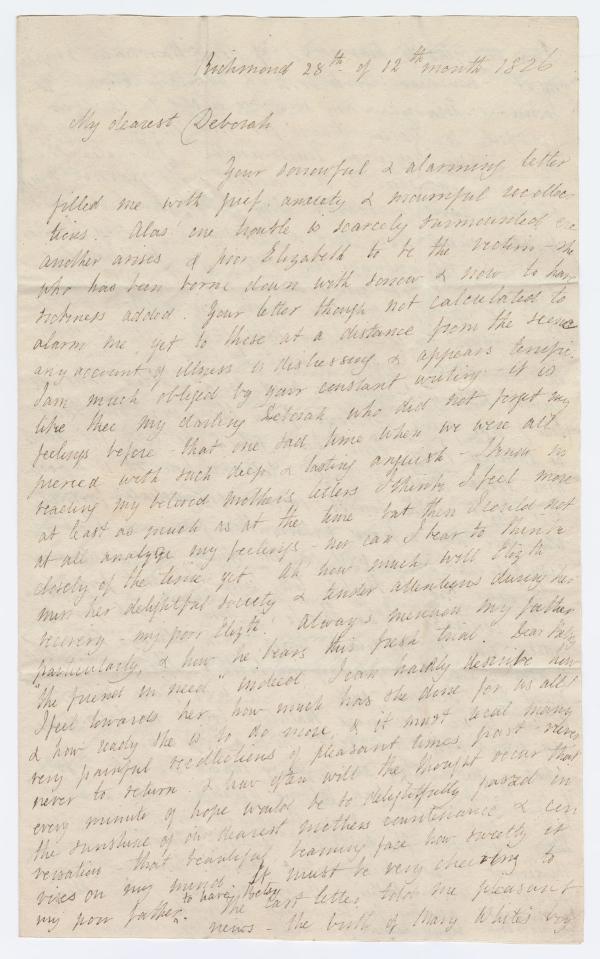 Richmond 28th of 12th month 1826
My dearest Deborah
Your sorrowful & alarming letter
filled me with grief, anxiety & mournful recollec-
tions. - Alas one trouble is scarcely surmounted ere
another arises & poor Elizabeth to be the victim - she
who has been borne down with sorrow & now to have
sickness added. Your letter though not calculated to
alarm me, yet to those at a distance from the scene
any account of illness is distressing & appears terrific.
I am much obliged by your constant writing it is
like thee my darling Deborah who did not forget my
feelings before that one sad time when we were all
pierced with such deep & lasting anguish - I know in
reading my beloved mother's letters I think I feel more
at least as much as at the time but then I could not
at all analyze my feelings - nor can I bear to think
closely of the time yet. Ah how much will Elizth
miss her delightful society & tender attentions during her
recovery - my poor Elizth. Always mention my father
particularly, & how he bears this fresh trial. Dear Betsy
"the friend in need" indeed I can hardly describe how
I feel towards her how much has she done for us all!
& how ready she is to do more, & it must recal many
very painful recollections of pleasant times past never
never to return & how often will the thought occur that
every minute of hope would be so delightfully passed in
the sunshine of our dearest mothers countenance & con
versation - that beautiful beaming face how sweetly it
rises on my mind. It must be very cheering to
my poor father to have Betsy. The last letter told me pleasant
news - the birth of Mary White's boy